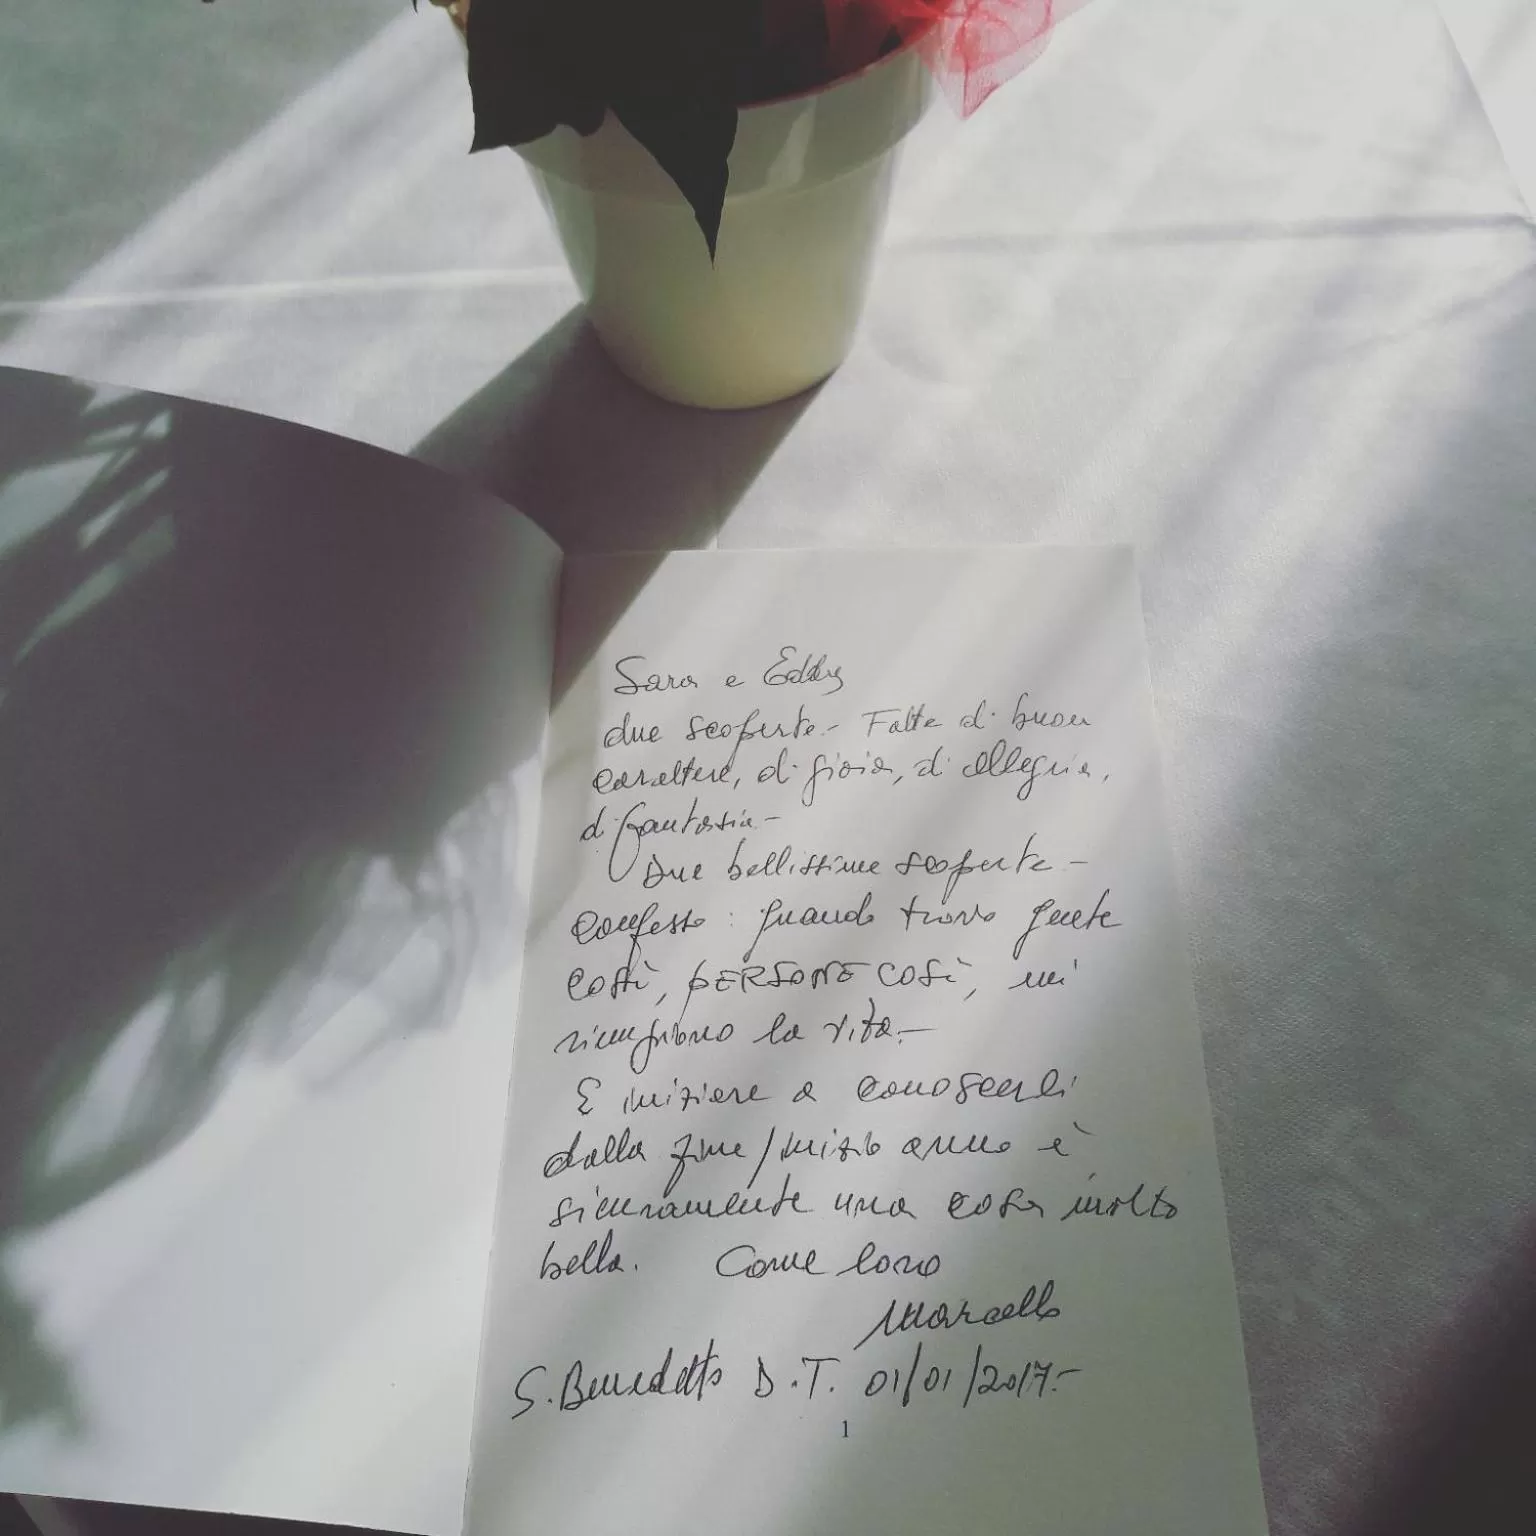 Sara e Eddy
due scoperte.- Fatte di buon
carattere, di gioia, di allegria,
di fantasia.-
Due bellissime scoperte -
Confesso: quando trovo gente
così, PERSONE COSÌ, mi
riempiono la vita.-
E iniziare a conoscerli
dalla fine/inizio anno è
sicuramente una cosa molto
bella. Come loro
Marcello
S. Benedetto D.T. 01/01/2017.-
1